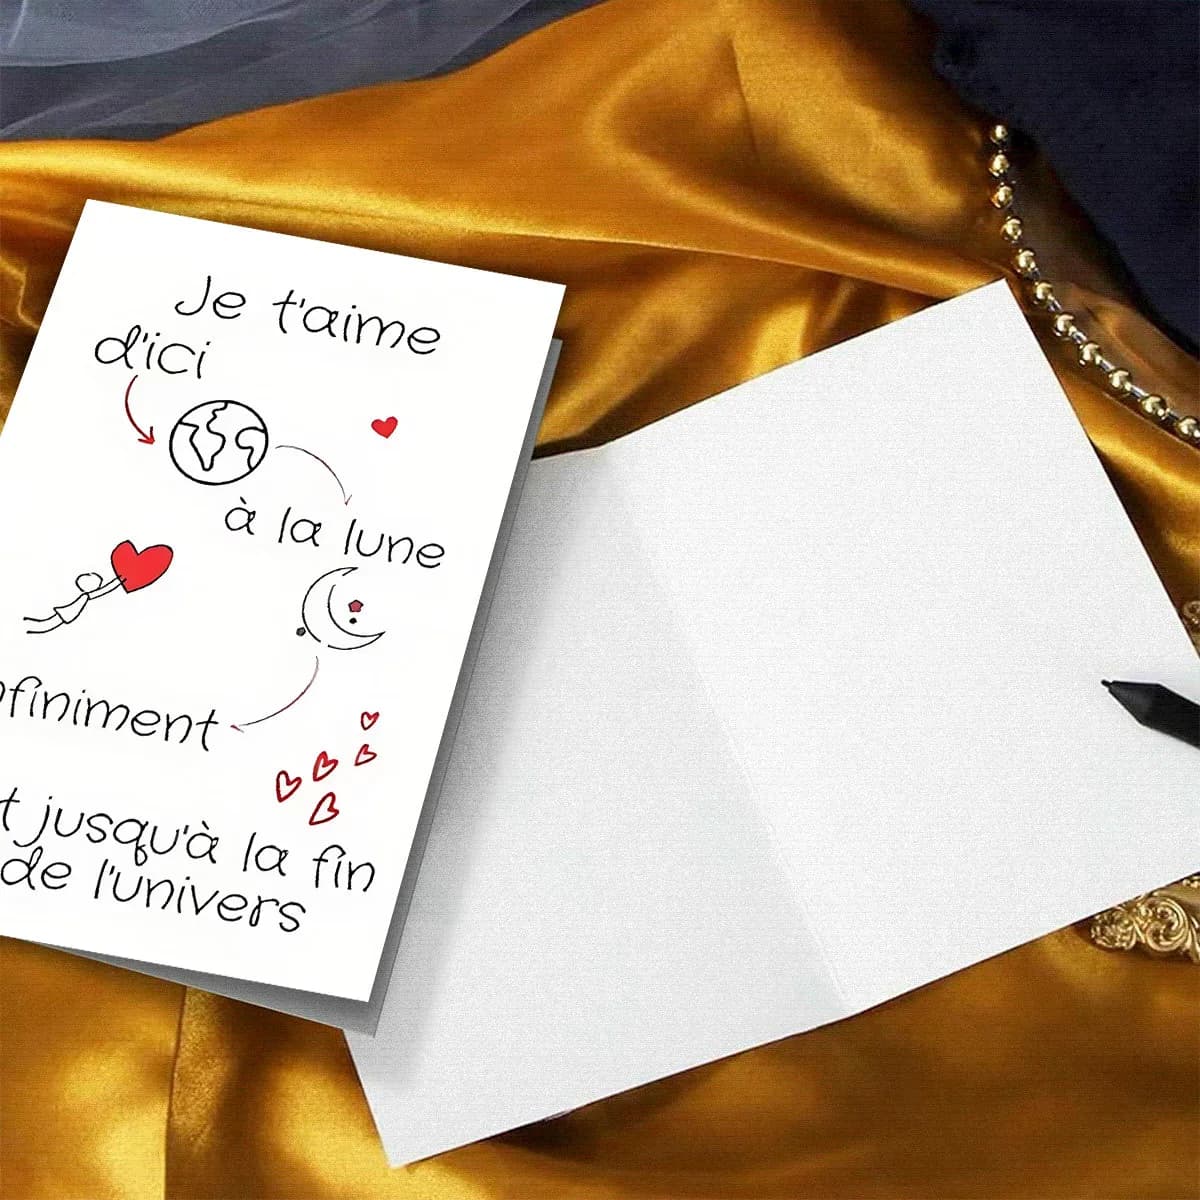 Je t'aime
d'ici
à la lune
nfiniment
t jusqu'à la fin
de l'univers